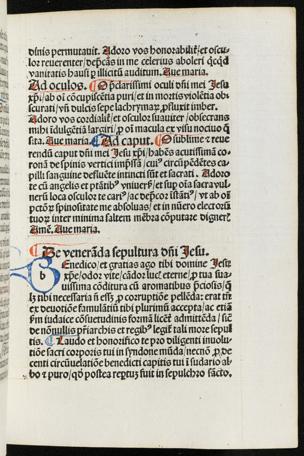 diuinis permutauit. Adoro vos honorabilit᷑/et oscu-
lor reuerenter/dep̄cās in me celerius aboleri qc̄qd
vanitatis hausi ꝑ illicitū auditum. Aue maria.
Ad oculos. O p̄clarissimi oculi dn̄i mei Jesu
xp̄i/ab oī cōcupiscētia puri/et in mortis violētia obscu-
rati/yn̄ dulcis sepe lachrymaꝝ ꝓfluxit imber.
Adoro vos cordialit᷑/et osculor suauiter/obsecrans
mihi īdulgētiā largiri/ꝓ oī macula ex visu nocuo q̄
sita. Aue maria. Ad caput. O sublime ⁊ reue
rendū caput dn̄i mei Jesu xp̄i/habēs acutissimā co-
ronā de spinis vertici impssā/cui᷒ circūpēdētes ca-
pilli sanguine defluēte intincti sūt et sacrati. Adoro
te cū angelis et ptātib᷒ vniuers᷑/et sup oīa sacra vul-
nerū loca osculor te cari᷒/ac dep̄cor īstāti᷒/vt ab oī
ptōꝝ spinositate me absoluas/et in nūero electorū
tuoꝝ inter minima saltem mēbra cōputare digner᷑
Amē. Aue maria.
De venerāda sepultura dn̄i Jesu.
Benedico/et gratias ago tibi domine Jesu
xp̄e/odor vite/cādor luc᷑ eterne/ꝓ tua sua-
uissima cōditura cū aromatibus p̄ciosis/q̄
lꝫ tibi necessaria n̄ essꝫ ꝓ corruptiōe pellēda: erat tn̄
ex deuotiōe famulāriū tibi plurimū accepta/ac etiā
īm iudaice cōsuetudinis formā licet᷑ admittēda/sic᷑
de nōnullis p̄riarchis et regib᷒ legit᷑ tali more sepul
tis. Laudo et honorifico te pro diligenti inuolu-
tiōe sacri corporis tui in syndone mūda/necnō ꝓ de
centi circūuelatiōe benedicti capitis tui ī sudario al-
bo ⁊ puro/qō postea repertuꝫ fuit in sepulchro sācto.